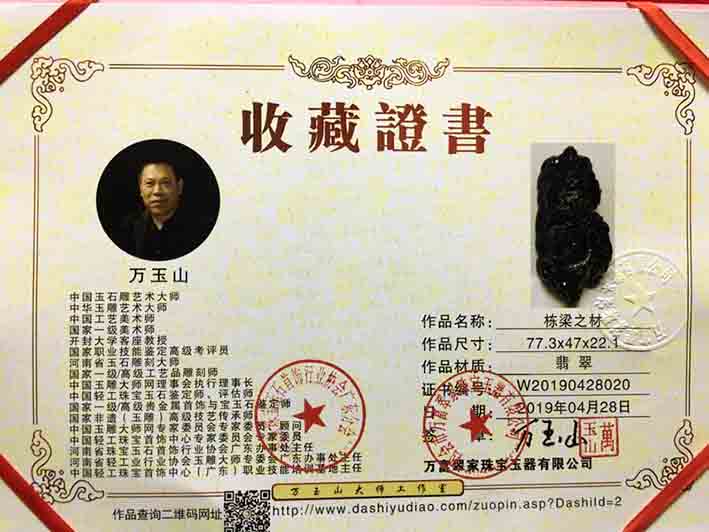 收藏證書
万玉山
中国玉石雕艺术大师
中华玉雕艺术大师
中国工艺美术师
国家一级美术师
开封大学客座教授
国家职业技能鉴定高级考评员
河南省玉石雕刻大师
国家一级/高级工艺品雕刻师
中国玉雕大师网理事会执行理事长
中国轻工珠宝玉石鉴定师、评估师
国家一级/高级贵金属首饰与宝玉石鉴定师
国家非遗(玉雕)高级技艺传承师
国家玉雕大师网专家委员会专家 顾问
中国轻工珠宝首饰中心专家委员会专家委员
河南省珠宝玉石首饰行业协会广东办事处主任
中国轻工珠宝首饰中心(广东)职业技能培训基地主任
作品名称: 栋梁之材
作品尺寸: 77.3x47x22.1
作品材质: 翡翠
证书编号: W20190428020
日期: 2019年04月28日
签章: 万玉山
万富翠家珠宝玉器有限公司
万玉山大师工作室
作品查询二维码网址 http://www.dashiyudiao.com/zuopin.asp?DashiId=2